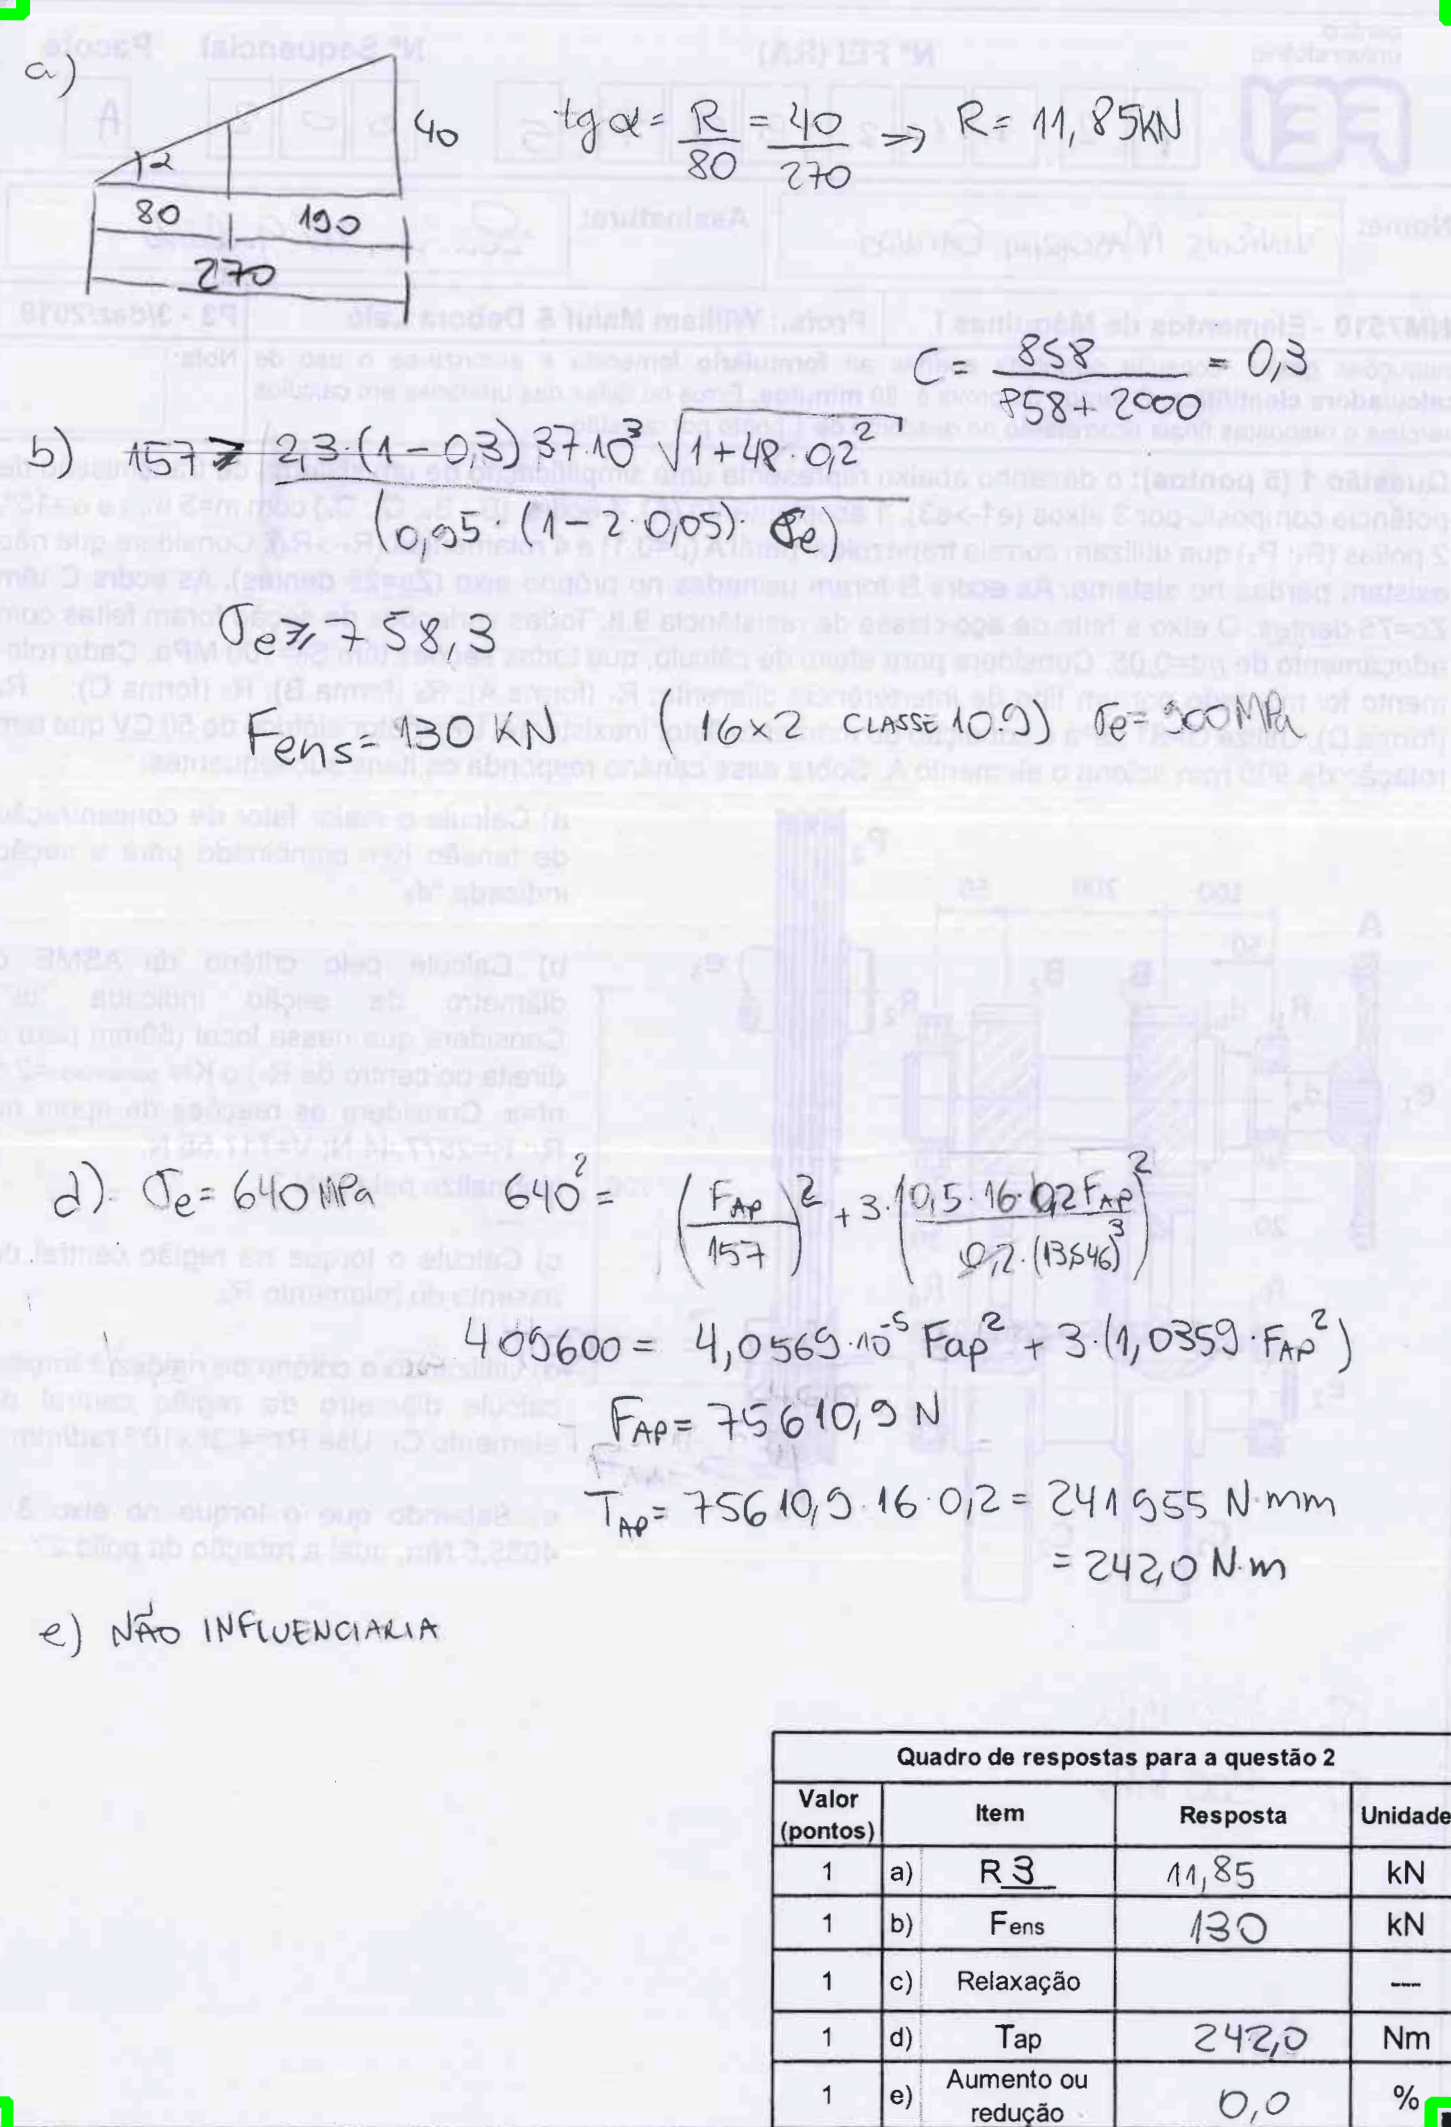 a)
α
40
80 190
270
tg α = R/80 = 40/270 => R = 11,85KN
C = 858/(858 + 2000) = 0,3
b) 157 ≥ 2,3·(1 - 0,3) 37·10³ √(1 + 48·0,2²) / (0,95·(1 - 2·0,05)·σe)
σe ≥ 758,3
Fens = 130 KN (16x2 CLASSE 10.9) σe = 900 MPa
d) σe = 640 MPa 640² = (FAP/157)² + 3·(0,5·16·0,2 FAP/0,2·(13,546)³)²
409600 = 4,0569·10⁻⁵ Fap² + 3·(1,0359·FAP²)
FAP = 75610,9 N
TAP = 75610,9·16·0,2 = 241955 N·mm
= 242,0 N·m
e) NÃO INFLUENCIARIA
Quadro de respostas para a questão 2
Valor (pontos) Item Resposta Unidade
1 a) R 3 11,85 kN
1 b) Fens 130 kN
1 c) Relaxação ---
1 d) Tap 242,0 Nm
1 e) Aumento ou redução 0,0 %